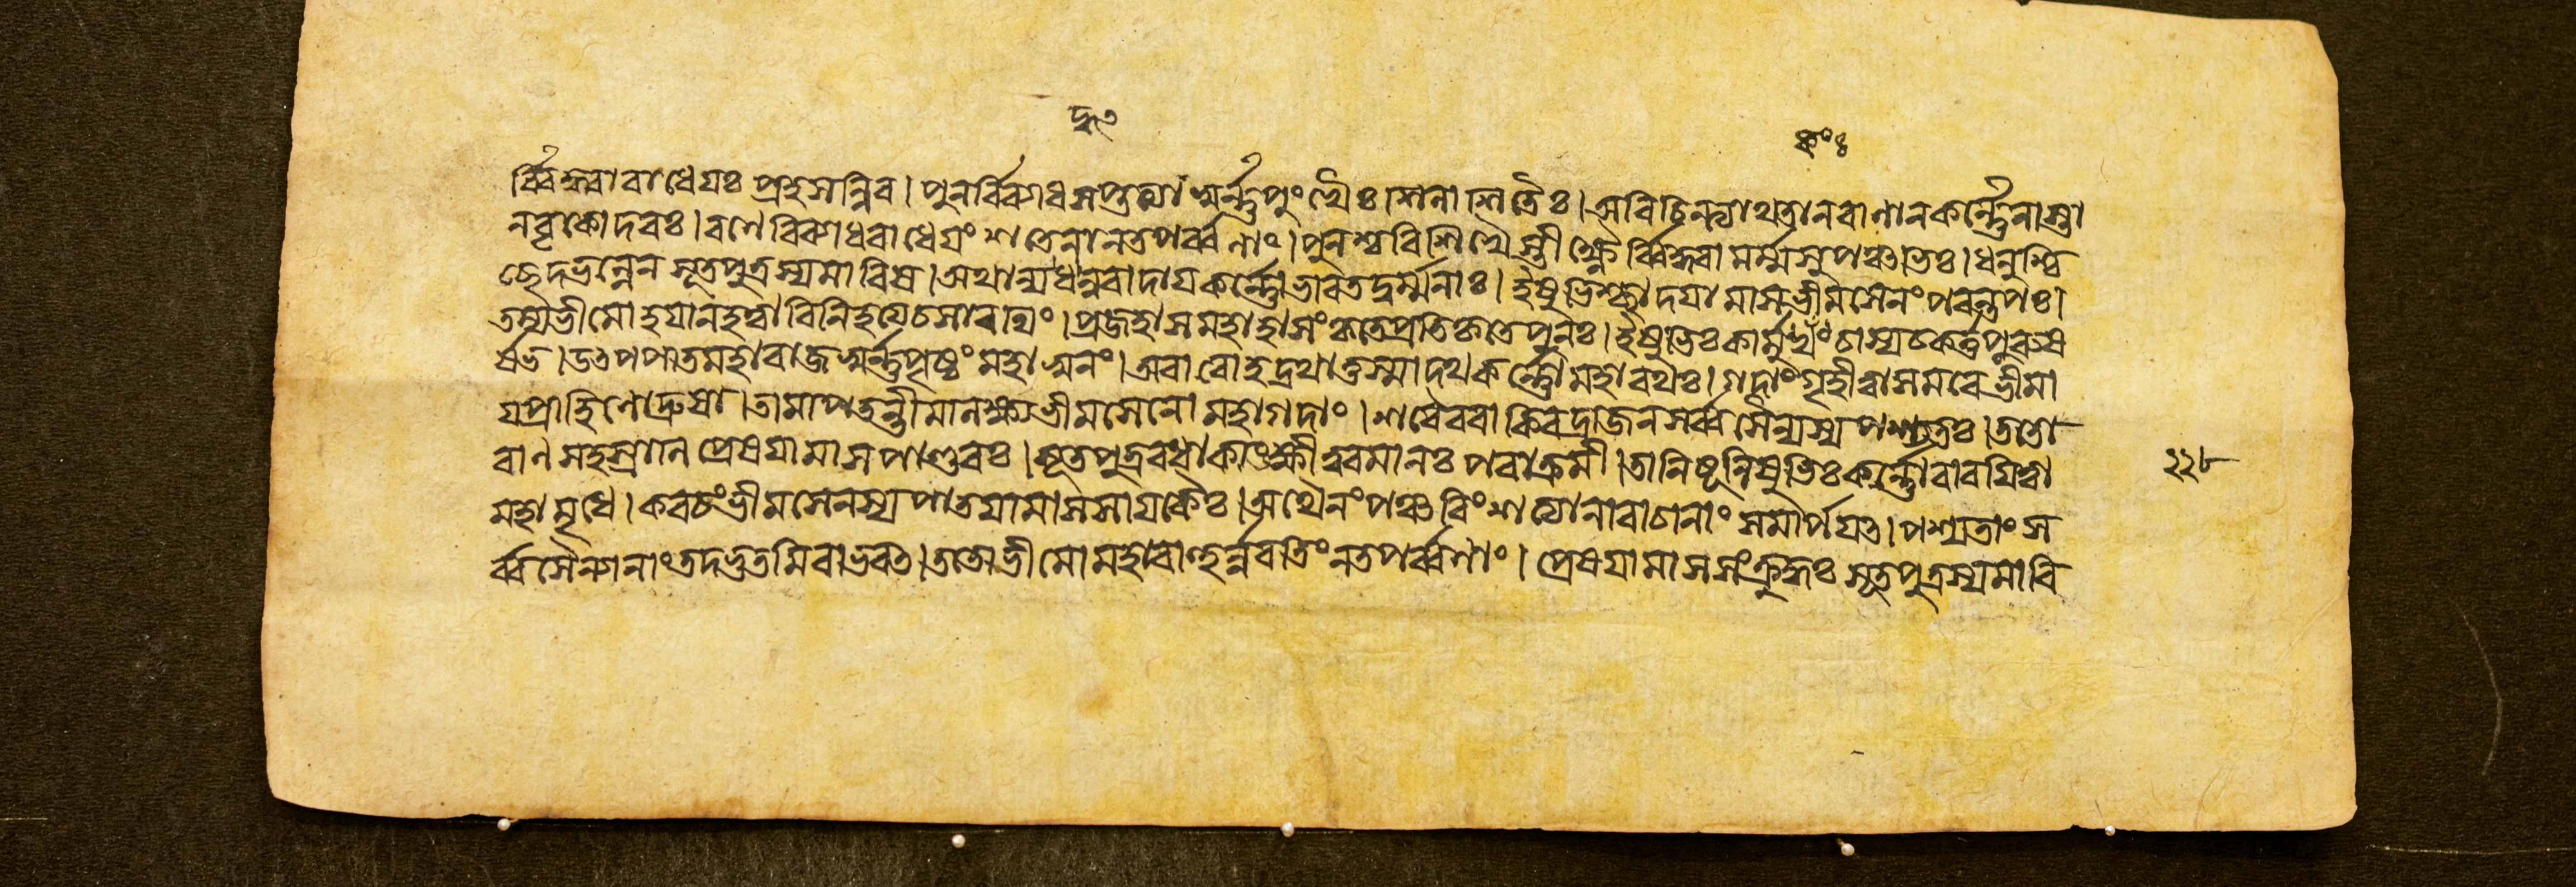 র্ব্বিদ্ধ্বা রাধেয়ঃ প্রহসন্নিব। পুনর্ব্বিব্যাধ সপ্তত্যা স্বর্ন্নপুংখৈঃ শিলাশিতৈঃ। অবিচিন্ত্যাথ তান বাণান কর্ন্নেনাস্তা
ন বৃকোদরঃ। রণে বিব্যাধ রাধেয়ং শতেনানতপর্ব্বণাং। পুনশ্চ বিশিখৈস্তীক্ষ্ণৈর্ব্বিদ্ধ্বা মর্ম্মসু পঞ্চভিঃ। ধনুশ্চি
চ্ছেদ ভল্লেন সূতপুত্রস্য মারিষ। অথান্যধনুরাদায় কর্ন্নো ভারত দুর্ম্মনাঃ। ইষুভিশ্ছাদয়ামাস ভীমসেনং পরন্তপঃ।
তস্য ভীমো হয়ান হত্বা বিনিহত্য চ সারথিং। প্রজহাস মহাহাসং কৃতে প্রতিকৃতে পুনঃ। ইষুভিঃ কার্মুখং চাস্য চকর্ত্ত পুরুষ
র্ষভ। তৎ পপাত মহারাজ স্বর্ন্নপৃষ্ঠং মহাস্বনং। অবারোহদ্রথাত্তস্মাদথ কর্ন্নো মহারথঃ। গদাং গৃহীত্বা সমরে ভীমা
য় প্রাহিণোদ্রুষা। তামাপতন্তীমালক্ষ্য ভীমসেনো মহাগদাং। শরৈরবাকিরদ্রাজন সর্ব্বসৈন্যস্য পশ্যতঃ। ততো
বাণসহস্রানি প্রেষয়ামাস পাণ্ডবঃ। সূতপুত্রবধাকাঙ্ক্ষী ত্বরমানঃ পরাক্রমী। তানিষূনিষুভিঃ কর্ন্নো বারয়িত্বা
মহামৃধে। কবচং ভীমসেনস্য পাতয়ামাস সায়কৈঃ। অথৈনং পঞ্চবিংশত্যা নারাচানাং সমার্পয়ত। পশ্যতাং স
র্ব্বসৈন্যানাং তদদ্ভুতমিবাভবত। ততো ভীমো মহাবাহুর্ন্নবতিং নতপর্ব্বণাং। প্রেষয়ামাস সংক্রুদ্ধঃ সূতপুত্রস্য মারি
২২৮